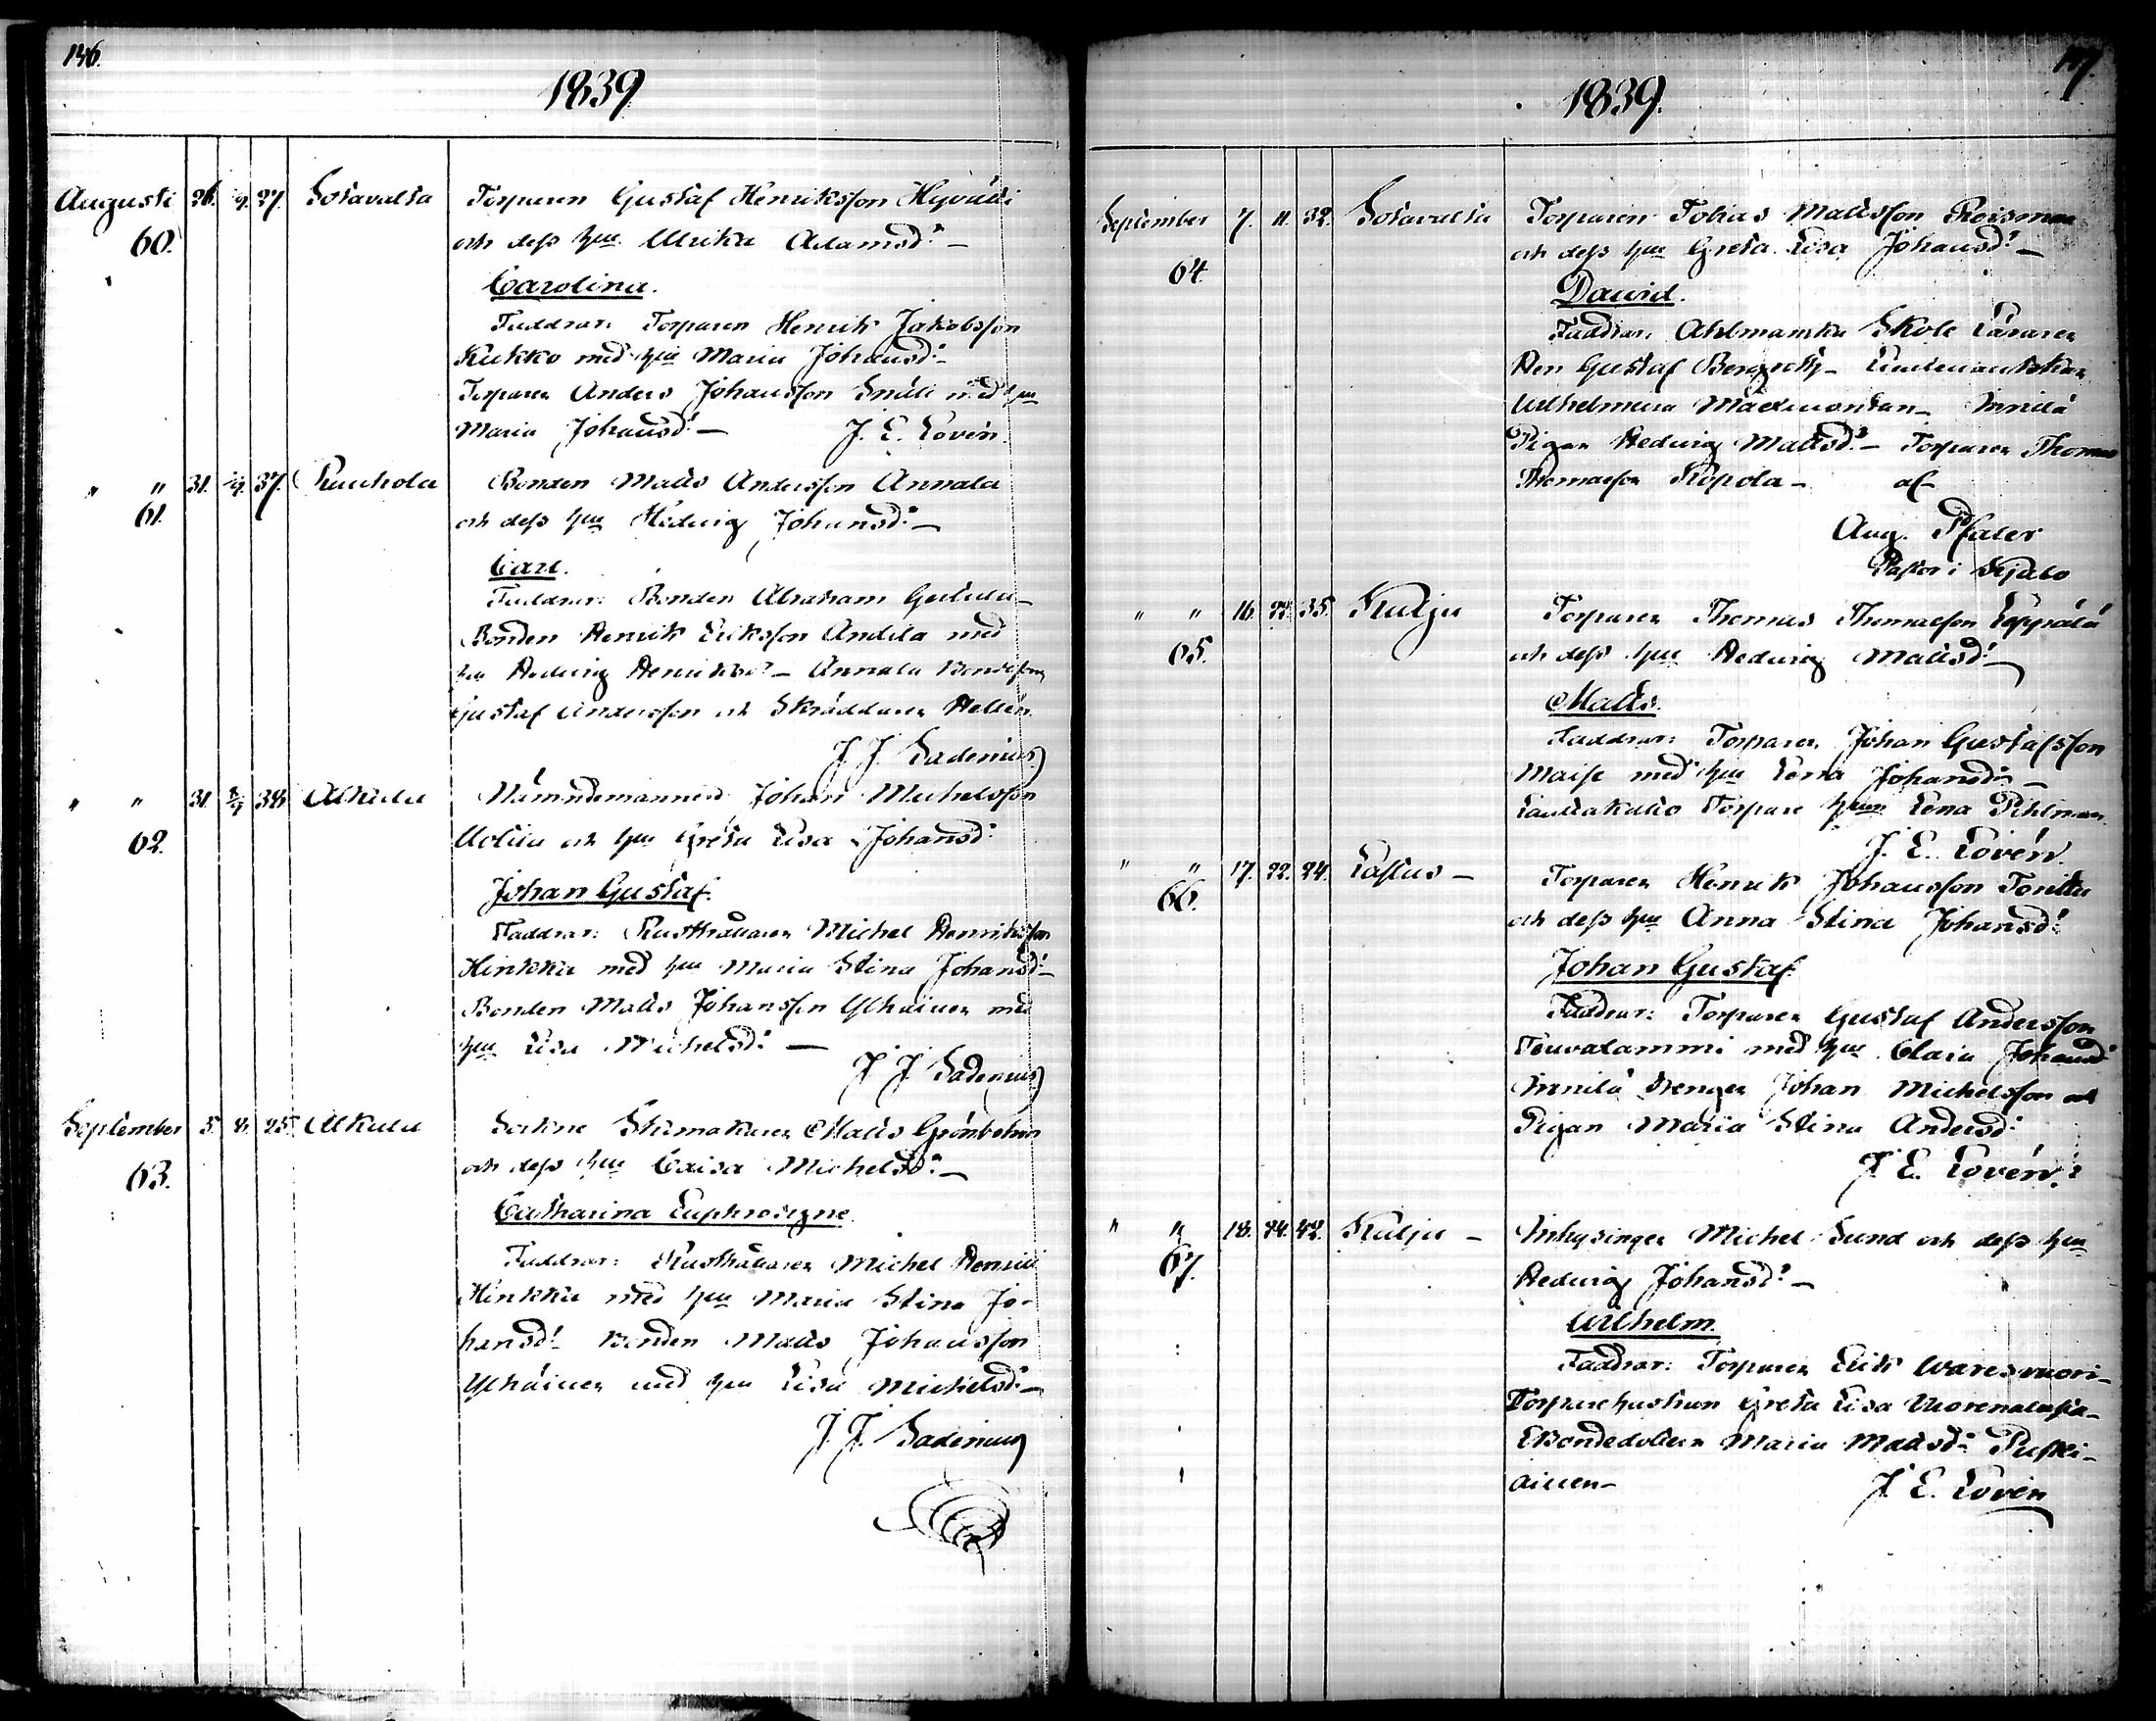 146.
1839
Augusti 26. 1/9. 27. Sotavalta Torparen Gustaf Henriksson Hyväsi
60. och dess hu Ulrika Adamsdr
Carolina.
Faddrar: Torparen Henrik Jakobsson
Kukko med hu Maria Johansdr
Torparen Anders Johansson med hu
Maria Johansdr J. E. Lovén.
" " 31. 1/9. 37. Rauhola Bonden Matts Andersson Annala
61. och dess hu Hedvig Johansdr
Carl.
Faddrar: Bonden Abraham
Bonden Henrik Eriksson Andila med
hu Hedvig Henriksdr Annala Bondeson
Gustaf Andersson och Skräddaren Hellén.
J J Sadenius
" " 31. 38. Alkula Nämndemannen Johan Michelsson
62. Uotila och hu Greta Lisa Johansdr
Johan Gustaf.
Faddrar: Rusthållaren Michel Henriksson
Hinkka med hu Maria Stina Johansdr
Bonden Matts Johansson Ylhäinen med
hu Lisa Michelsdr
J. J. Sadenius
September 5. 8. 25. Alkula Sockne Skomakaren Matts Grönbohm
63. och dess hu Caisa Michelsdr
Catharina Euphrosyne.
Faddrar: Rusthållaren Michel
Hinkka med hu Maria Stina Jo-
hansdr Bonden Matts Johansson
Ylhäinen med hu Lisa Michelsdr
J. J. Sadenius
147.
1839.
September 7. 11. 32. Sotavalta Torparen Tobias Mattsson Roisman
64. och dess hu Greta Lisa Johansdr
David.
Faddrar: Ahlmanska Skole Läraren
Herr Gustaf
Wilhelmina Annila
Pigan Hedvig Mattsdr Torparen Thomas
Thomasson af
Aug. Pfaler
Pastor i Kjulo
" " 16. 22. 35. Kulju Torparen Thomas Thomasson Leppälä
65. och dess hu Hedvig Mattsdr
Matts.
Faddrar: Torparen Johan Gustafsson
Maise med hu Lena Johansdr
Torpare hun Lena Pihlman.
J. E. Lovén.
" " 17. 22. 24. Lastus Torparen Henrik Johansson
66. och dess hu Anna Stina Johansdr
Johan Gustaf.
Faddrar: Torparen Gustaf Andersson
Teuvalammi med hu Maria Johansdr
Annila Drengen Johan Michelsson och
Pigan Maria Stina Andersdr
J. E. Lovén.
" " 18. 24. 42. Kulju Inhysingen Michel Lund och dess hu
67. Hedvig Johansdr
Wilhelm.
Faddrar: Torparen Erik Waresvuori
Torparehustrun Greta Lisa Vuorenalusta
Bondedottern Maria Mattsdr Puski-
ainen J. E. Lovén